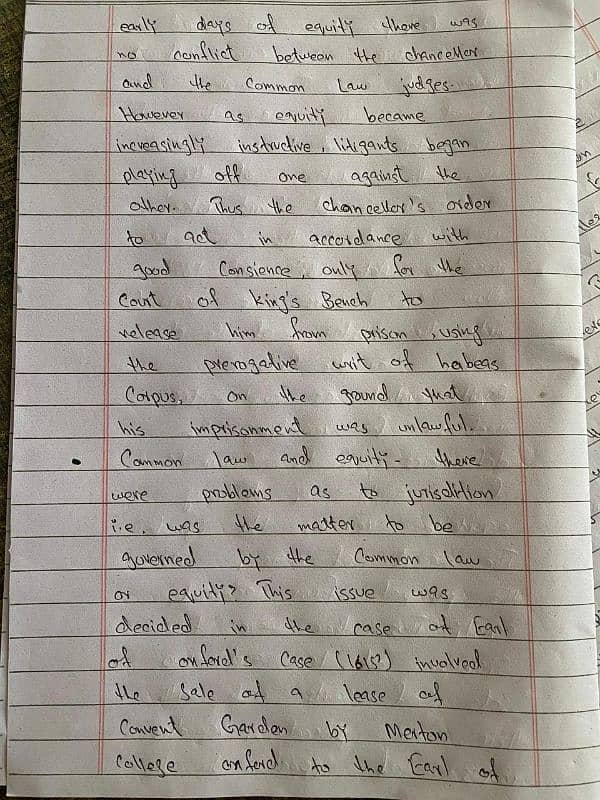 early days of equity there was
no conflict between the chanceller
and the Common Law judges.
However as equity became
increasingly instructive, litigants began
playing off one against the
other. Thus the chanceller's order
to act in accordance with
good Consience, only for the
Court of King's Bench to
release him from prison, using
the prerogative writ of habeas
Corpus, on the ground that
his imprisonment was unlawful.
• Common law and equity - there
were problems as to jurisdition
i.e. was the matter to be
governed by the Common law
or equity? This issue was
decided in the case of Earl
of onford's Case (1615?) involved
the Sale of a lease of
Convent Garden by Merton
College onford to the Earl of